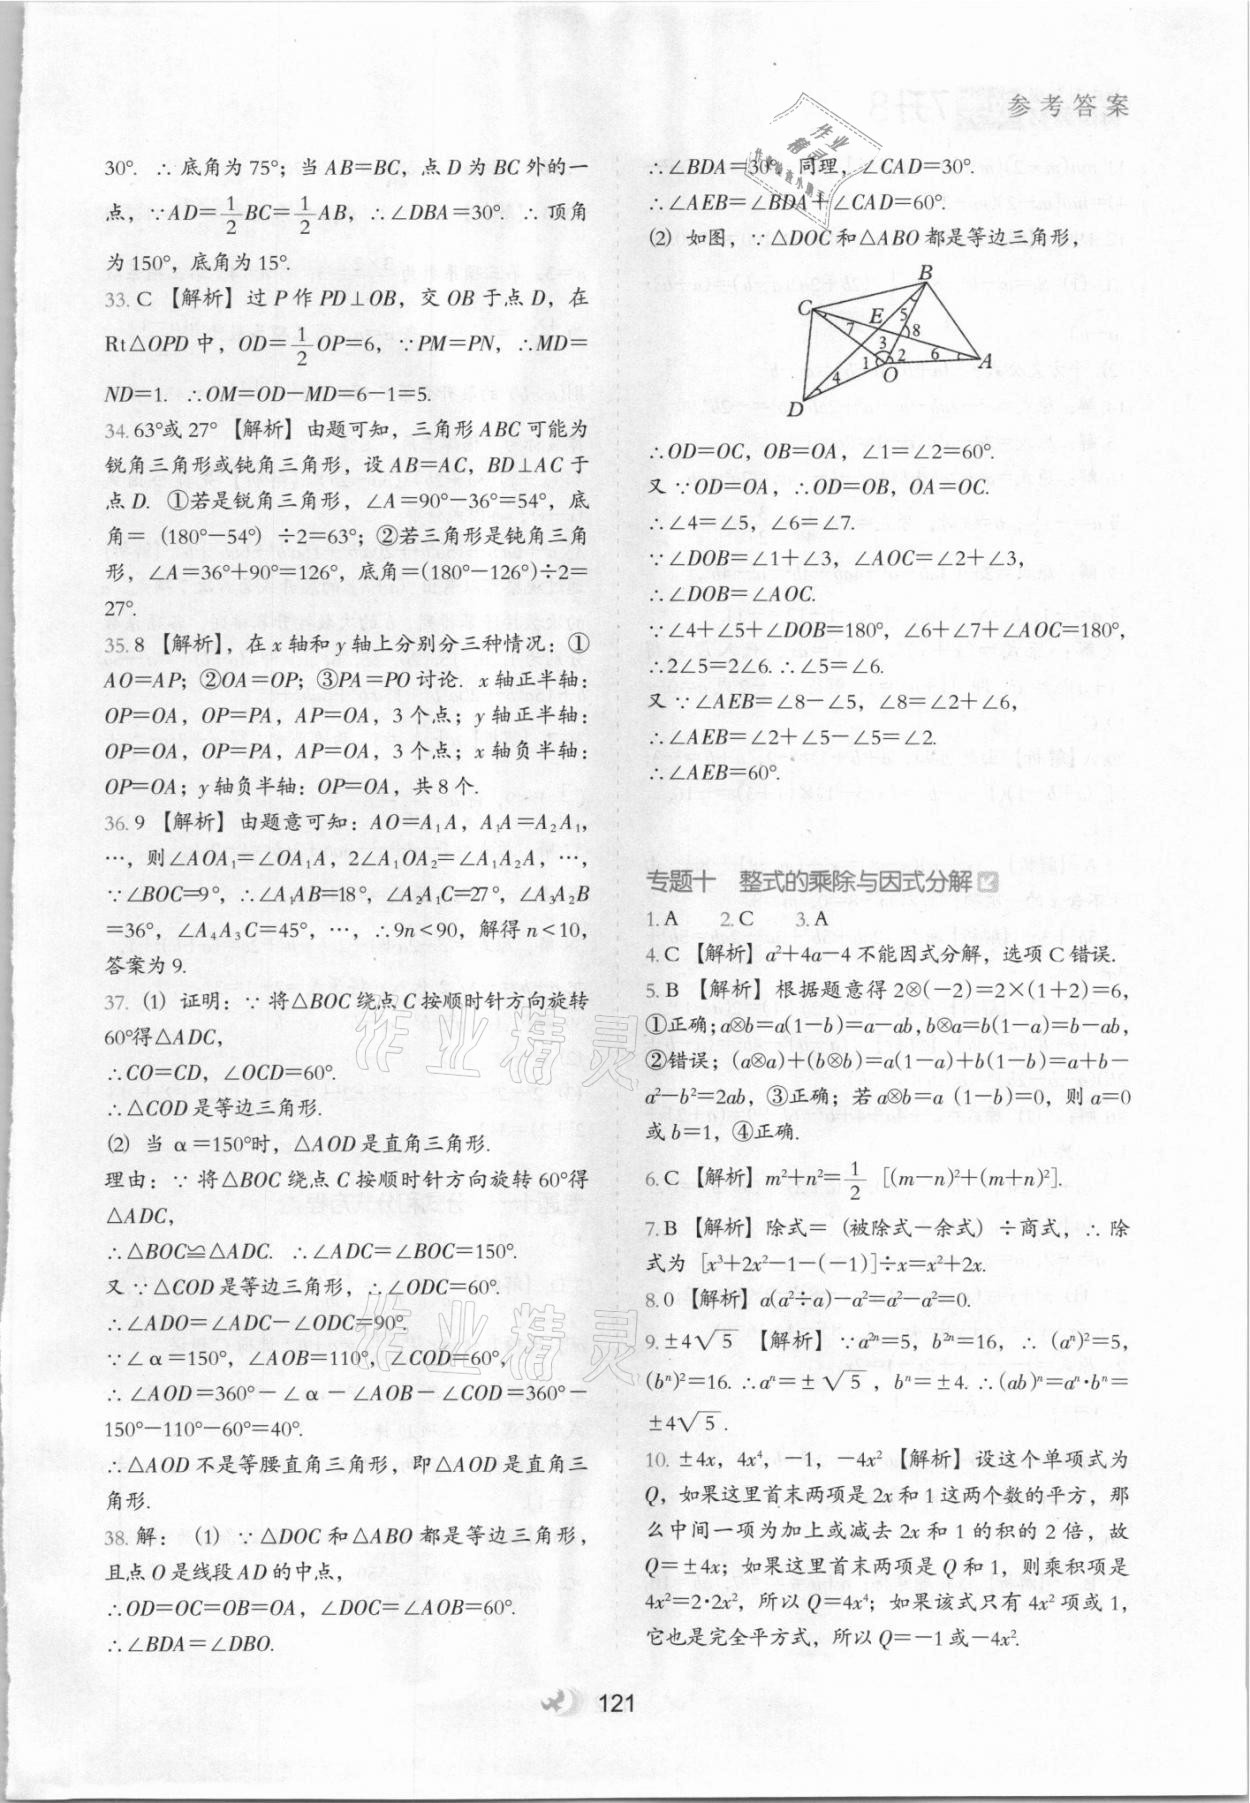 参考答案
30°. ∴底角为75°；当AB=BC，点D为BC外的一
点，∵AD=1/2BC=1/2AB，∴∠DBA=30°. ∴顶角
为150°，底角为15°.
33. C 【解析】过P作PD⊥OB，交OB于点D，在
Rt△OPD中，OD=1/2OP=6，∵PM=PN，∴MD=
ND=1. ∴OM=OD-MD=6-1=5.
34. 63°或27° 【解析】由题可知，三角形ABC可能为
锐角三角形或钝角三角形，设AB=AC，BD⊥AC于
点D. ①若是锐角三角形，∠A=90°-36°=54°，底
角=(180°-54°)÷2=63°；②若三角形是钝角三角
形，∠A=36°+90°=126°，底角=(180°-126°)÷2=
27°.
35. 8 【解析】，在x轴和y轴上分别分三种情况：①
AO=AP；②OA=OP；③PA=PO讨论. x轴正半轴：
OP=OA，OP=PA，AP=OA，3个点；y轴正半轴：
OP=OA，OP=PA，AP=OA，3个点；x轴负半轴：
OP=OA；y轴负半轴：OP=OA，共8个.
36. 9 【解析】由题意可知：AO=A₁A，A₁A=A₂A₁，
…，则∠AOA₁=∠OA₁A，2∠A₁OA₂=∠A₁A₂A，…，
∵∠BOC=9°，∴∠A₁AB=18°，∠A₂A₁C=27°，∠A₃A₂B
=36°，∠A₄A₃C=45°，…，∴9n<90，解得n<10，
答案为9.
37. (1) 证明：∵将△BOC绕点C按顺时针方向旋转
60°得△ADC，
∴CO=CD，∠OCD=60°.
∴△COD是等边三角形.
(2) 当α=150°时，△AOD是直角三角形.
理由：∵将△BOC绕点C按顺时针方向旋转60°得
△ADC，
∴△BOC≌△ADC. ∴∠ADC=∠BOC=150°.
又∵△COD是等边三角形，∴∠ODC=60°.
∴∠ADO=∠ADC-∠ODC=90°.
∵∠α=150°，∠AOB=110°，∠COD=60°，
∴∠AOD=360°-∠α-∠AOB-∠COD=360°-
150°-110°-60°=40°.
∴△AOD不是等腰直角三角形，即△AOD是直角三
角形.
38. 解：(1) ∵△DOC和△ABO都是等边三角形，
且点O是线段AD的中点，
∴OD=OC=OB=OA，∠DOC=∠AOB=60°.
∴∠BDA=∠DBO.
∴∠BDA=30°. 同理，∠CAD=30°.
∴∠AEB=∠BDA+∠CAD=60°.
(2) 如图，∵△DOC和△ABO都是等边三角形，
B
C E 5
7 3 8
1 2 6 A
4 O
D
∴OD=OC，OB=OA，∠1=∠2=60°.
又∵OD=OA，∴OD=OB，OA=OC.
∴∠4=∠5，∠6=∠7.
∵∠DOB=∠1+∠3，∠AOC=∠2+∠3，
∴∠DOB=∠AOC.
∵∠4+∠5+∠DOB=180°，∠6+∠7+∠AOC=180°，
∴2∠5=2∠6. ∴∠5=∠6.
又∵∠AEB=∠8-∠5，∠8=∠2+∠6，
∴∠AEB=∠2+∠5-∠5=∠2.
∴∠AEB=60°.
专题十 整式的乘除与因式分解
1. A 2. C 3. A
4. C 【解析】a²+4a-4不能因式分解，选项C错误.
5. B 【解析】根据题意得2⊗(-2)=2×(1+2)=6，
①正确；a⊗b=a(1-b)=a-ab，b⊗a=b(1-a)=b-ab，
②错误；(a⊗a)+(b⊗b)=a(1-a)+b(1-b)=a+b-
a²-b²=2ab，③正确；若a⊗b=a (1-b)=0，则a=0
或b=1，④正确.
6. C 【解析】m²+n²=1/2 [(m-n)²+(m+n)²].
7. B 【解析】除式=(被除式-余式)÷商式，∴除
式为 [x³+2x²-1-(-1)]÷x=x²+2x.
8. 0 【解析】a(a²÷a)-a²=a²-a²=0.
9. ±4√5 【解析】∵a²ⁿ=5，b²ⁿ=16，∴(aⁿ)²=5，
(bⁿ)²=16. ∴aⁿ=±√5，bⁿ=±4. ∴(ab)ⁿ=aⁿ·bⁿ=
±4√5.
10. ±4x，4x⁴，-1，-4x² 【解析】设这个单项式为
Q，如果这里首末两项是2x和1这两个数的平方，那
么中间一项为加上或减去2x和1的积的2倍，故
Q=±4x；如果这里首末两项是Q和1，则乘积项是
4x²=2·2x²，所以Q=4x⁴；如果该式只有4x²项或1，
它也是完全平方式，所以Q=-1或-4x².
121
作业精灵
作业精灵
作业
精灵